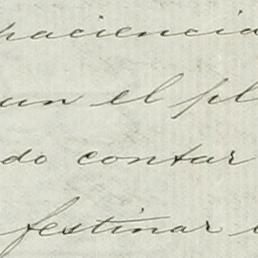 paciencia
un el pl
do contar
festinar